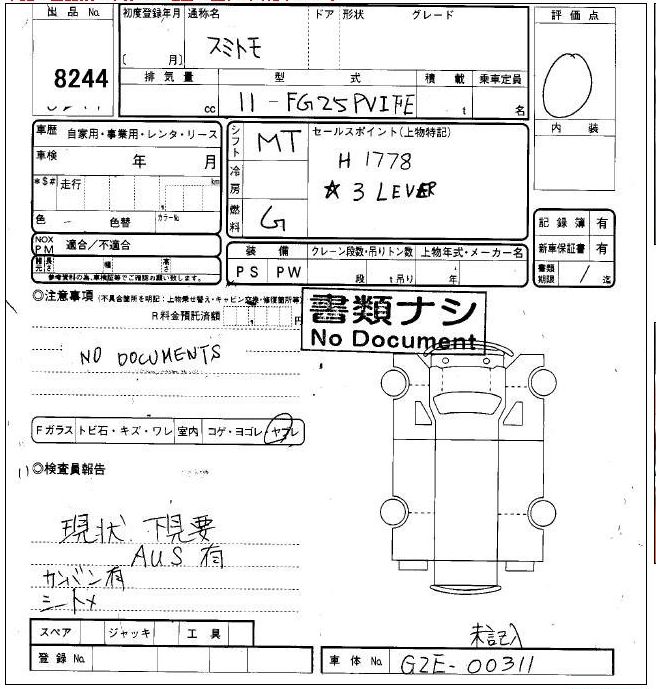 出品 No.
8244
初度登録年月
通称名
ドア
形状
グレード
〔 月〕
スミトモ
排気量
型式
積載
乗車定員
cc
11-FG25PVIFE
t
名
評価点
内装
車歴
自家用・事業用・レンタ・リース
車検
年 月
*$#
走行
km
色
色替
カラーNo.
NOX PM
適合/不適合
諸元
長さ
幅
高さ
参考資料の為、車検証等でご確認お願い致します。
シフト
MT
冷房
燃料
G
セールスポイント(上物特記)
H 1778
☆ 3 LEVER
装備
クレーン段数・吊りトン数
上物年式・メーカー名
PS
PW
段
t吊り
年
記録簿 有
新車保証書 有
書類期限
/
迄
◎注意事項
(不具合箇所を明記:上物乗せ替え・キャビン交換・修復箇所等)
R料金預託済額
円
書類ナシ
No Document
NO DOCUMENTS
Fガラス
トビ石・キズ・ワレ
室内
コゲ・ヨゴレ・ヤブレ
◎検査員報告
現状 下見要
AUS 有
カンバン有
シートメ
スペア
ジャッキ
工具
登録 No.
未記入
車体 No.
GZE-00311